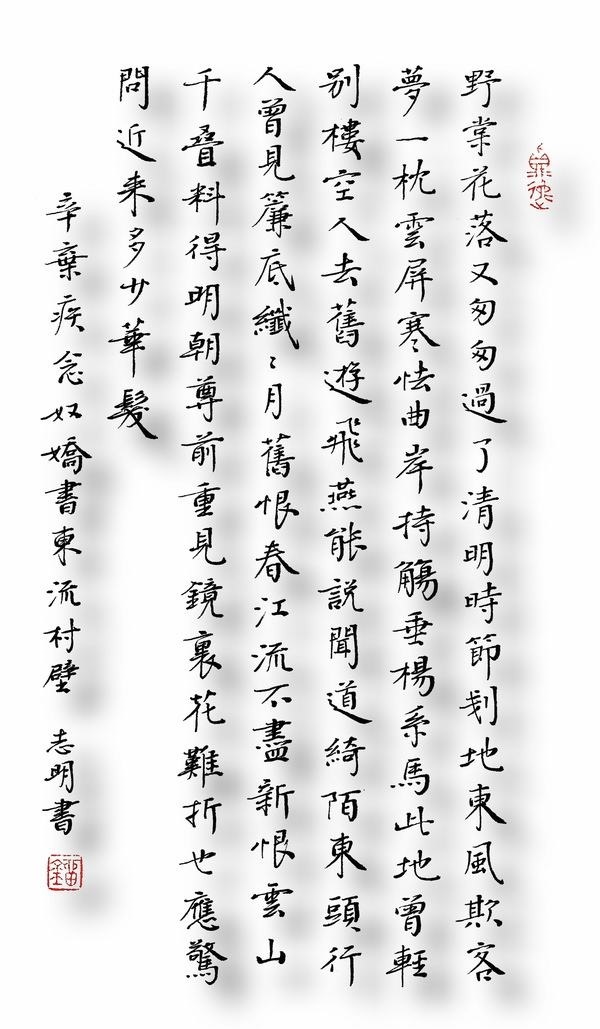 野棠花落又匆匆過了清明時節刬地東風欺客
夢一枕雲屏寒怯曲岸持觴垂楊系馬此地曾輕
別樓空人去舊遊飛燕能說聞道綺陌東頭行
人曾見簾底纖〻月舊恨春江流不盡新恨雲山
千疊料得明朝尊前重見鏡裏花難折也應驚
問近來多少華髮
辛棄疾念奴嬌書東流村壁 志明書